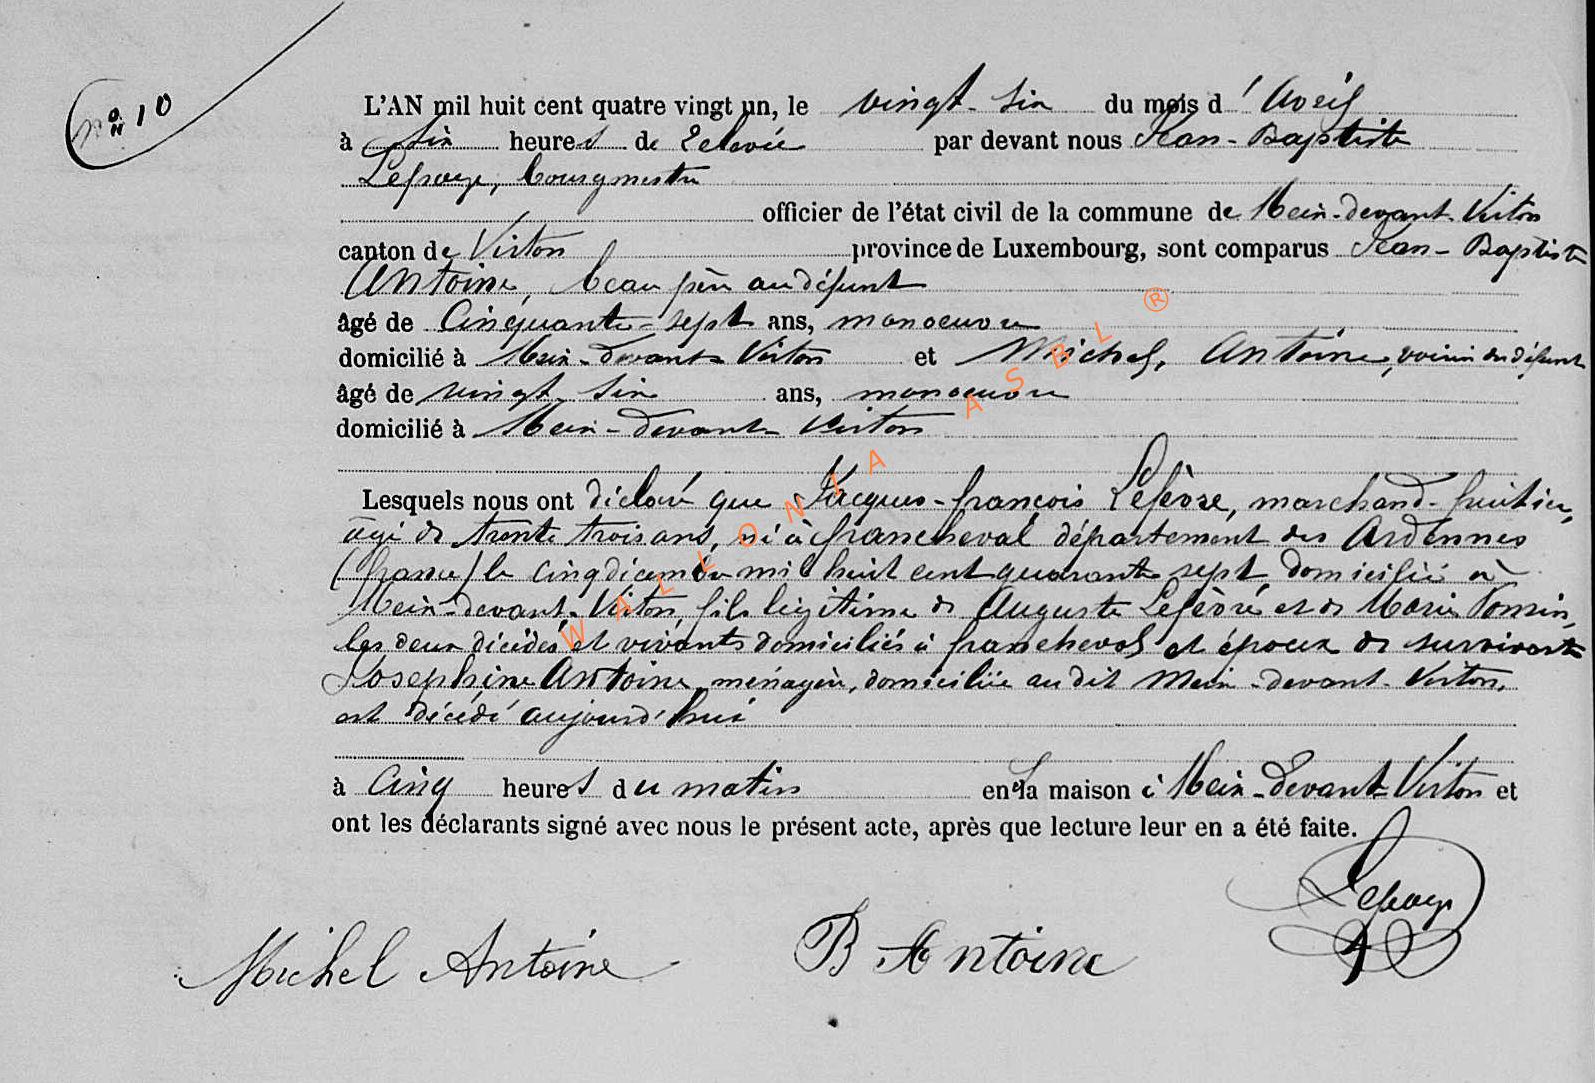 N° 10
L'AN mil huit cent quatre vingt un, le vingt-six du mois d'Avril
à six heures de relevée par devant nous Jean-Baptiste
Lepage, bourgmestre
officier de l'état civil de la commune de Meix-devant-Virton
canton de Virton province de Luxembourg, sont comparus Jean-Baptiste
Antoine, beau père au défunt
âgé de Cinquante-sept ans, manoeuvre
domicilié à Meix-devant-Virton et Michel, Antoine, voisin du défunt
âgé de vingt six ans, manoeuvre
domicilié à Meix-devant-Virton
Lesquels nous ont déclaré que Jacques-françois Lefèvre, marchand-fruitier,
âgé de trente trois ans, né à francheval département des Ardennes
(france) le cinq décembre mil huit cent quarante sept, domicilié à
Meix-devant-Virton, fils légitime de Auguste Lefèvre et de Marie
les deux décédés, et vivants domiciliés à francheval et époux de survivante
Josephine Antoine, ménagère, domiciliée au dit Meix-devant-Virton,
est décédé aujourd'hui
à Cinq heures du matin en sa maison à Meix-devant-Virton et
ont les déclarants signé avec nous le présent acte, après que lecture leur en a été faite.
Lepage
Michel Antoine B Antoine
WALLONIA ASBL ®